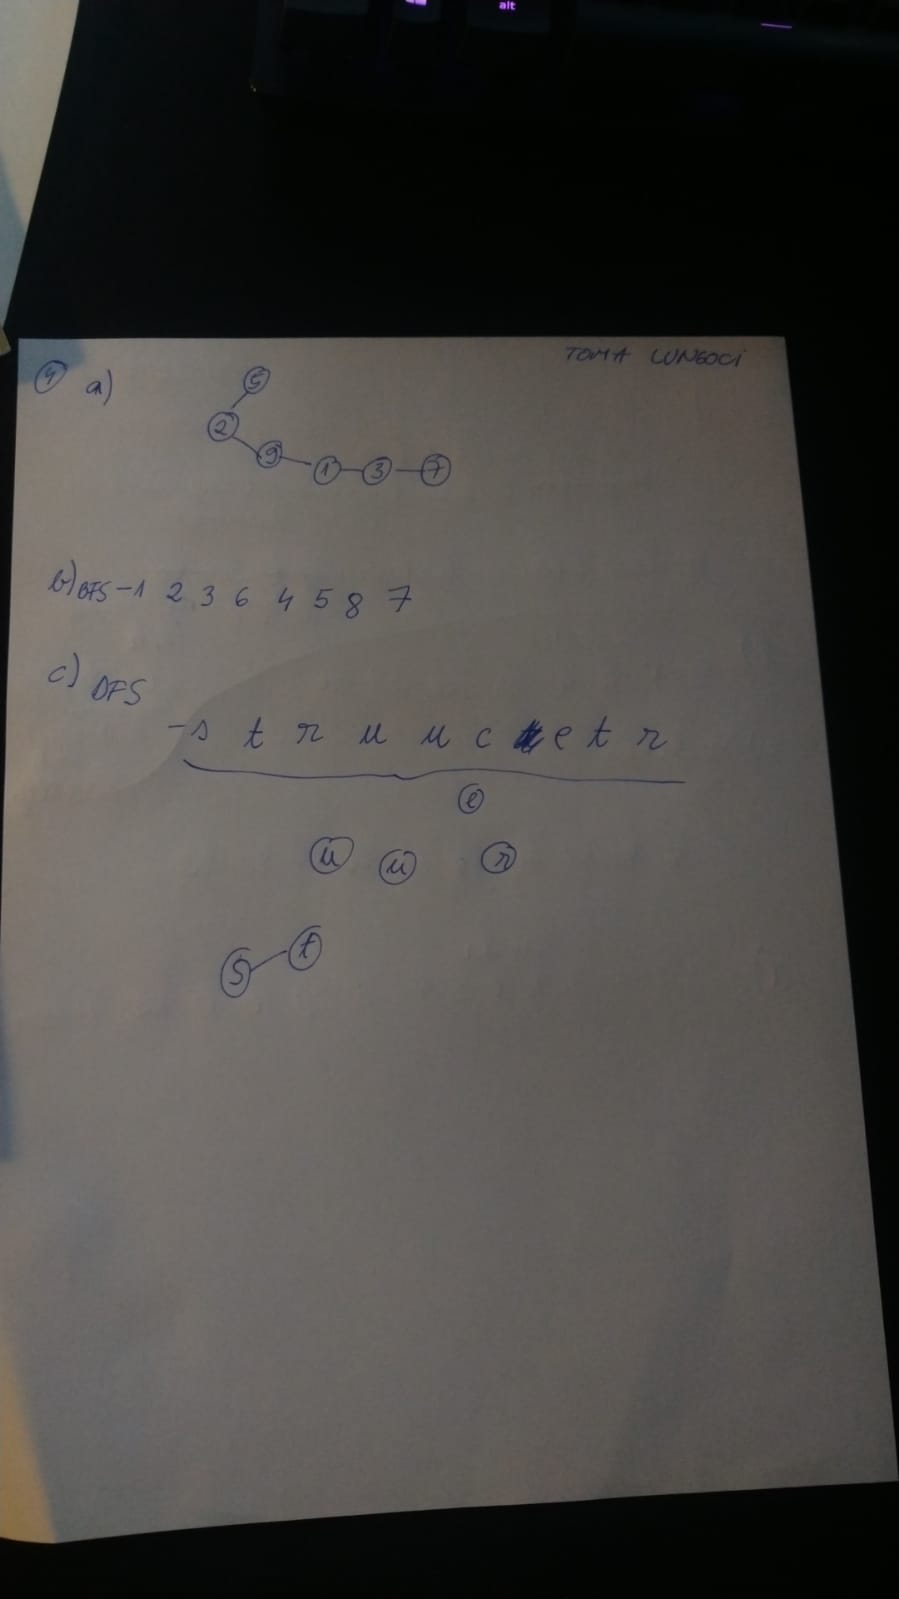 alt
TOMA LUNGOCI
4 a)
5
2
9 1 3 7
b) BFS - 1 2 3 6 4 5 8 7
c) DFS
- s t r u u c e t r
e
u u r
s t